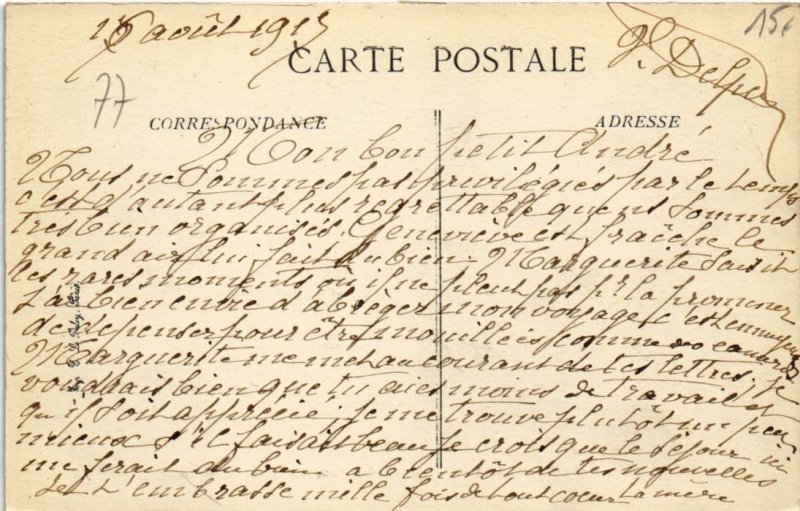 16 août 1913
CARTE POSTALE
15f
77
CORRESPONDANCE
ADRESSE
Mon bon petit André
Nous ne sommes pas privilégiés par le temps
c'est d'autant plus regrettable que ns sommes
très bien organisés. Geneviève est fraîche le
grand air lui fait du bien. Marguerite saisit
les rares moments où il ne pleut pas pr la promener
J'ai bien envie d'abréger mon voyage c'est ennuyeux
de dépenser pour être mouillées comme des canards
Marguerite me met au courant de tes lettres, je
voudrais bien que tu aies moins de travail et
qu'il soit apprécié; je me trouve plutôt un peu
mieux s'il faisait beau je crois que le séjour ici
me ferait du bien à bientôt de tes nouvelles
Je t'embrasse mille fois de tout coeur ta mère